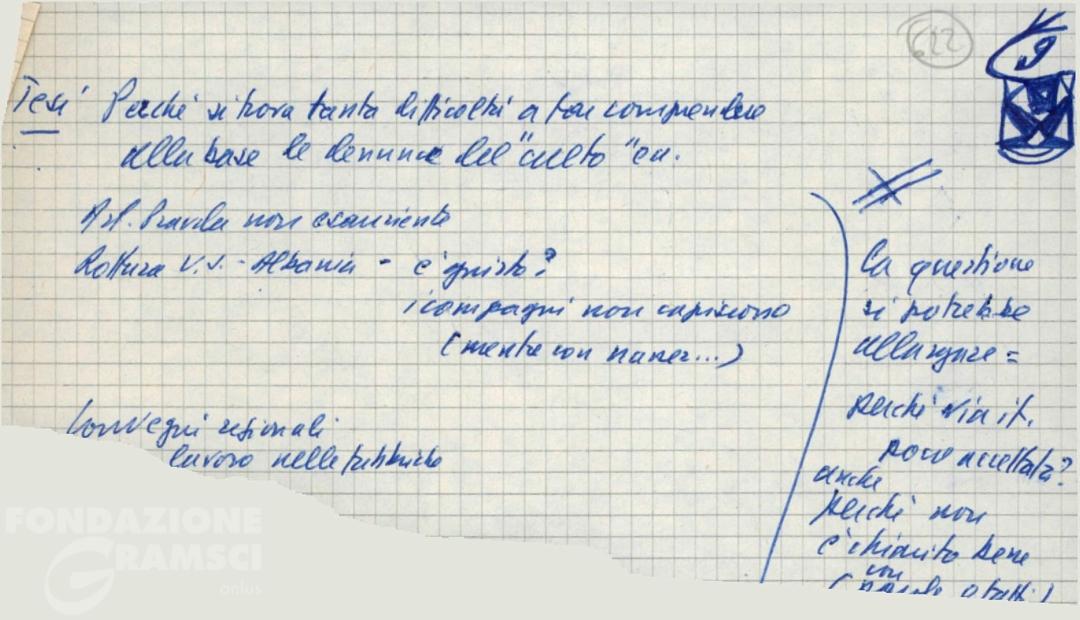 622
Tesi Perché si trova tanta difficoltà a far comprendere
alla base le denunce del "culto" ecc.
Art. Pravda non esauriente
Rottura U.S. - Albania - è giusto?
i compagni non capiscono
(mentre con
Convegni regionali
lavoro nelle fabbriche
La questione
si potrebbe
allargare =
perché via it.
poco accettata?
anche
perché non
è chiarito bene
con
FONDAZIONE
GRAMSCI
onlus